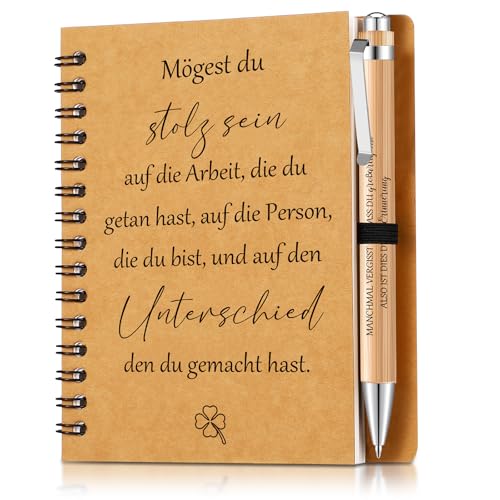 Mögest du
stolz sein
auf die Arbeit, die du
getan hast, auf die Person,
die du bist, und auf den
Unterschied
den du gemacht hast.
MANCHMAL VERGISST DU großartig
ALSO IST DIES Erinnerung